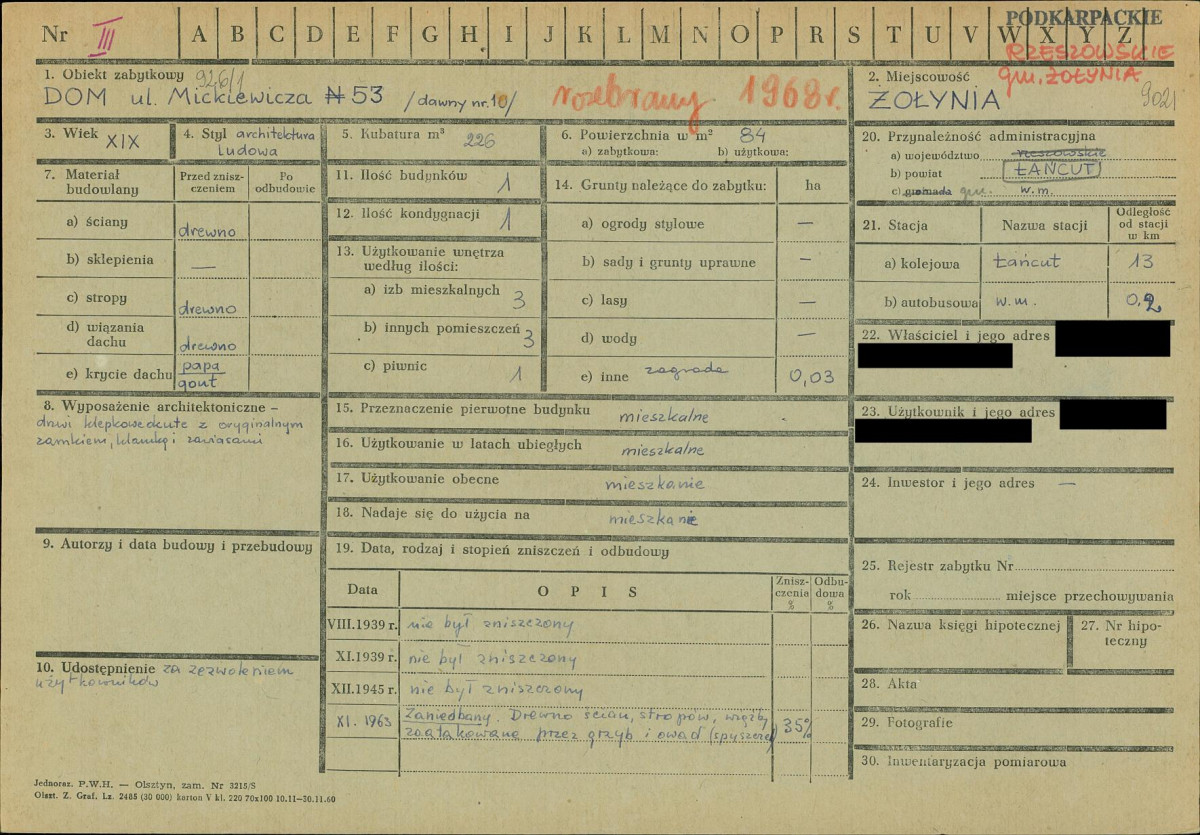 Nr III A B C D E F G H I J K L M N O P R S T U V W X Y Z
PODKARPACKIE
RZESZOWSKIE
gm. ŻOŁYNIA
1. Obiekt zabytkowy 926/1
DOM ul. Mickiewicza № 53 /dawny nr. 10/
rozebrany 1968 r.
2. Miejscowość
ŻOŁYNIA
9021
3. Wiek XIX
4. Styl architektura
Ludowa
5. Kubatura m³
226
6. Powierzchnia w m² 84
a) zabytkowa: b) użytkowa:
7. Materiał budowlany
Przed zniszczeniem
Po odbudowie
a) ściany drewno
b) sklepienia —
c) stropy drewno
d) wiązania dachu drewno
e) krycie dachu papa
gont
8. Wyposażenie architektoniczne –
drzwi klepkowe kute z oryginalnym
zamkiem, klamką i zawiasami
9. Autorzy i data budowy i przebudowy
10. Udostępnienie za zezwoleniem
użytkowników
11. Ilość budynków 1
12. Ilość kondygnacji 1
13. Użytkowanie wnętrza
według ilości:
a) izb mieszkalnych 3
b) innych pomieszczeń 3
c) piwnic 1
14. Grunty należące do zabytku: ha
a) ogrody stylowe —
b) sady i grunty uprawne —
c) lasy —
d) wody —
e) inne zagroda 0,03
15. Przeznaczenie pierwotne budynku mieszkalne
16. Użytkowanie w latach ubiegłych mieszkalne
17. Użytkowanie obecne mieszkanie
18. Nadaje się do użycia na mieszkanie
19. Data, rodzaj i stopień zniszczeń i odbudowy
Data OPIS Zniszczenia % Odbudowa %
VIII.1939 r. nie był zniszczony
XI.1939 r. nie był zniszczony
XII.1945 r. nie był zniszczony
XI. 1963 Zaniedbany. Drewno ścian, stropów, więźby 35%
zaatakowane przez grzyb i owad (spuszczel)
20. Przynależność administracyjna
a) województwo rzeszowskie
b) powiat ŁAŃCUT
c) gromada gm. w.m.
21. Stacja Nazwa stacji Odległość
od stacji
w km
a) kolejowa Łańcut 13
b) autobusowa w.m. 0,2
22. Właściciel i jego adres
23. Użytkownik i jego adres
24. Inwestor i jego adres —
25. Rejestr zabytku Nr
rok miejsce przechowywania
26. Nazwa księgi hipotecznej
27. Nr hipoteczny
28. Akta
29. Fotografie
30. Inwentaryzacja pomiarowa
Jednoraz. P.W.H. — Olsztyn, zam. Nr 3215/S
Olszt. Z. Graf. Lz. 2485 (30 000) karton V kl. 220 70x100 10.11—30.11.60